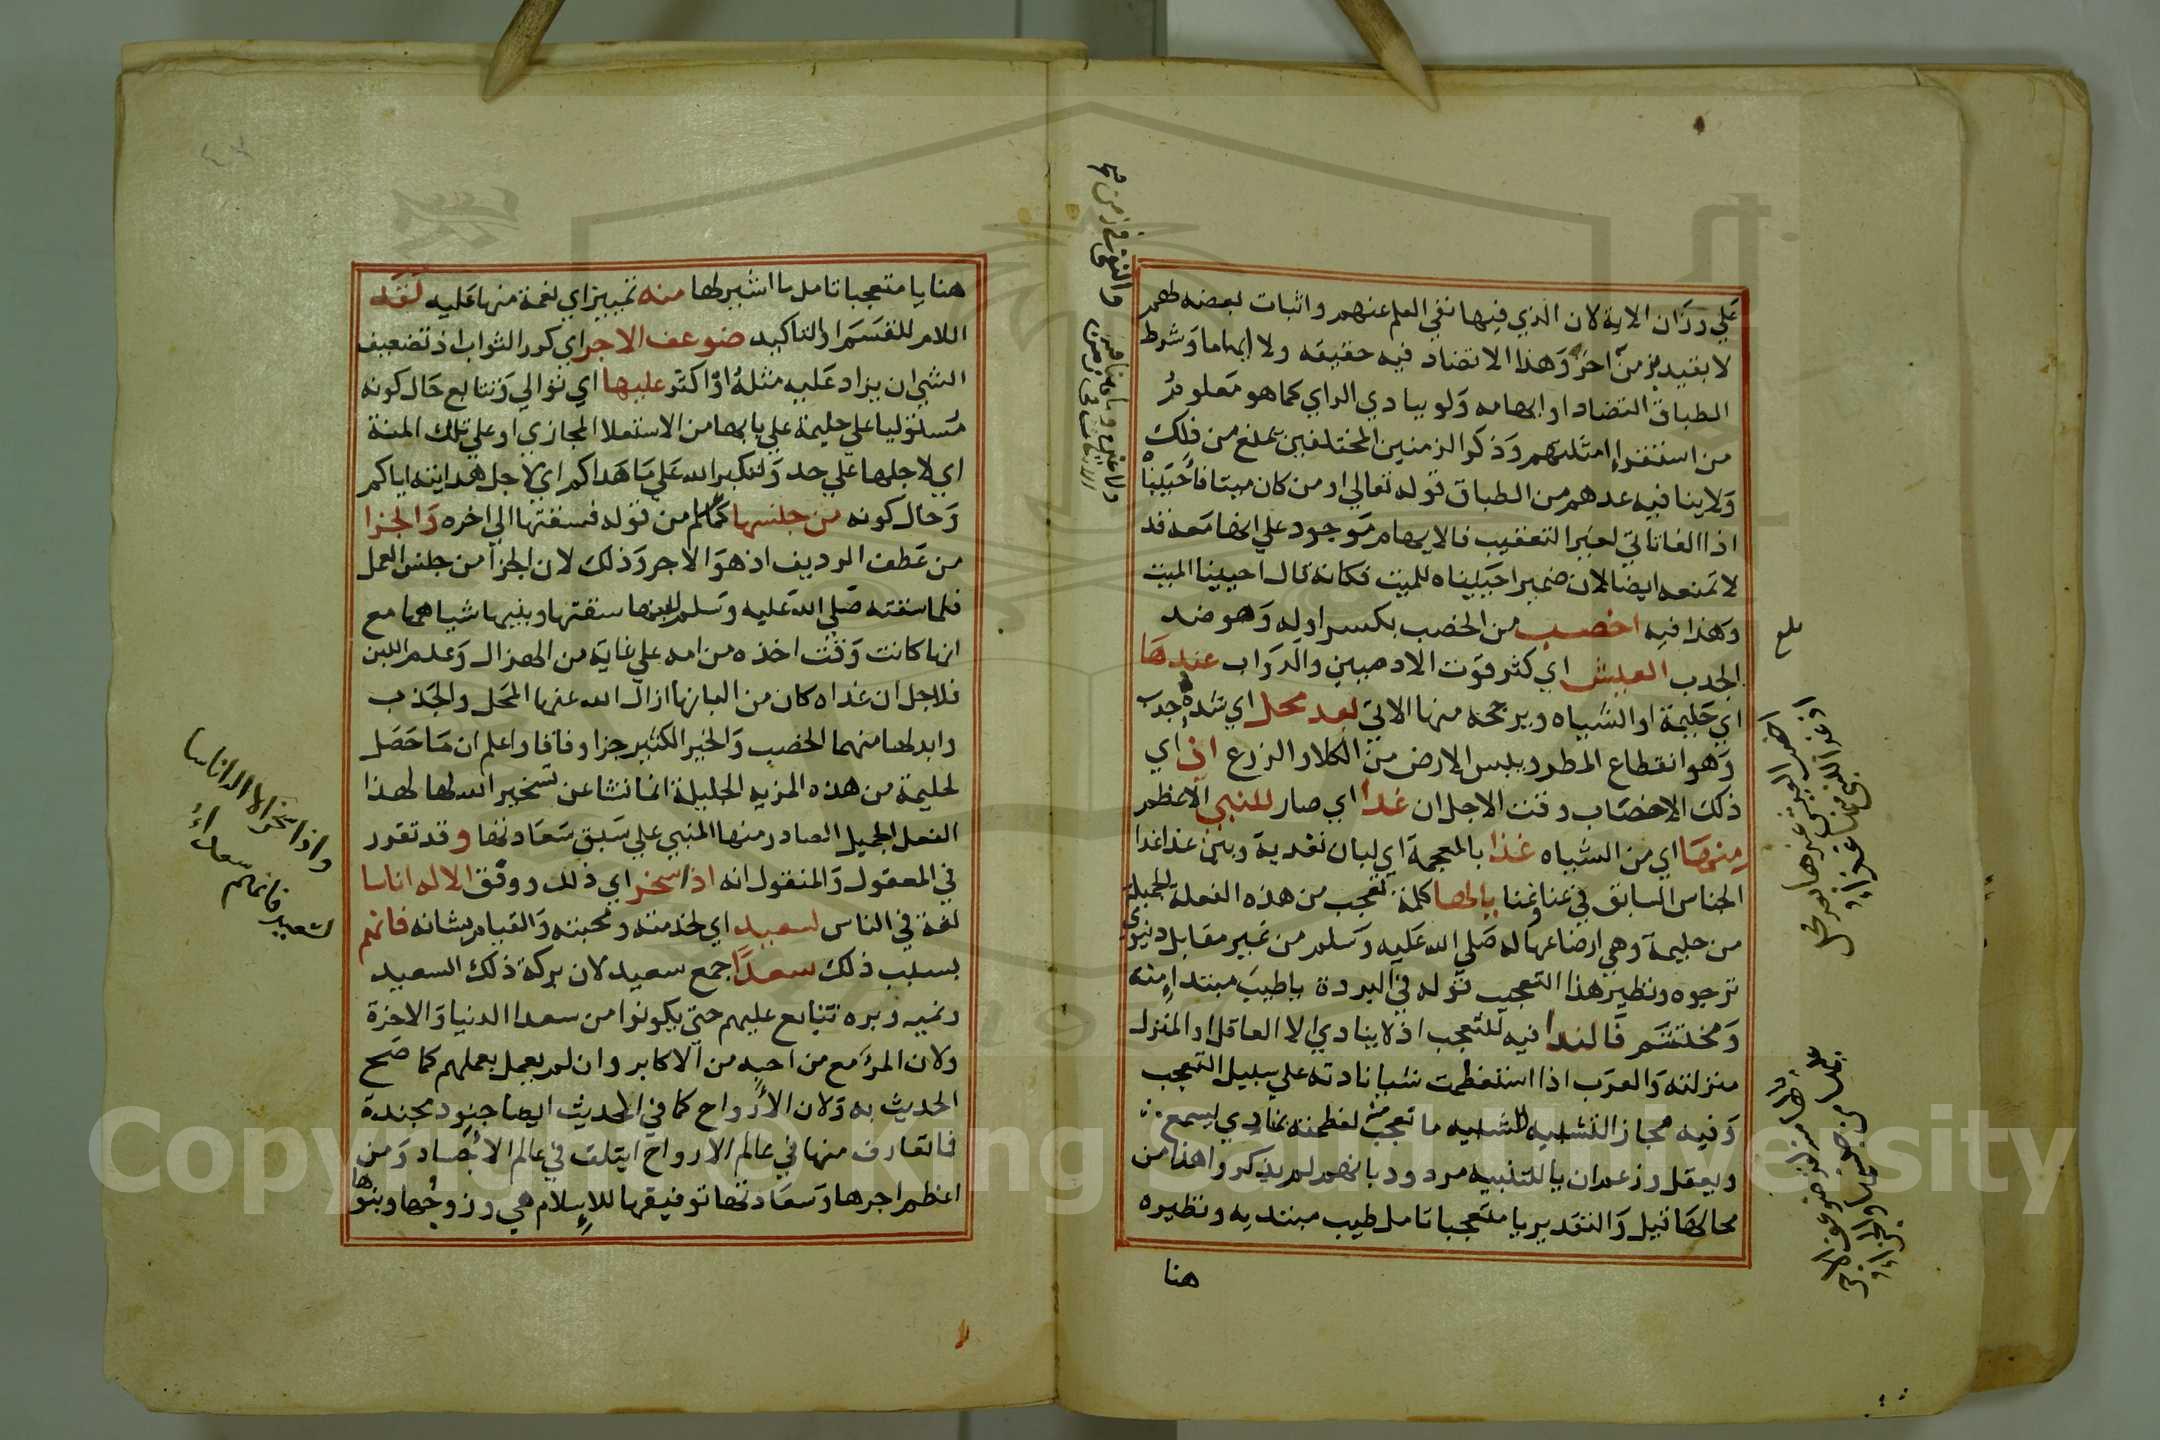 علي وزان الاية لان الذي فيها نفي العلم عنهم واثبات بعضه لهم
لا بقيد زمن اخر وهذا لا تضاد فيه حقيقة ولا ايهاما وشرط
الطباق التضاد او ايهامه ولو ببادي الراي كما هو معلوم
من استقراء امثلتهم وذكر الزمنين المختلفين يمنع من ذلك
ولا ينافيه عدهم من الطباق قوله تعالي او من كان ميتا فاحييناه
اذ الفا تاتي لغير التعقيب فالايهام موجود علي انها معه قد
لا تمنعه ايضا لان ضمير احييناه للميت فكانه قال احيينا الميت
وهذا فيه اخصب من الخصب بكسر اوله وهو ضد
الجدب العيش اي كثر قوت الادميين والدواب عندها
اي حليمة او الشياه ويرجحه منها الاتي بعد محل اي شدة جدب
وهو انقطاع المطر ويبس الارض من الكلا والزرع اذ اي
ذلك الاخصاب وقت الاجل ان غدا اي صار للنبي الاعظم
منها اي من الشياه غذا بالمعجمة اي لبان تغدية وبين غدا غذا
الجناس السابق في عنا وغنا يالها كلمة تعجب من هذه الفعلة الجميلة
من حليمة وهي ارضاعها له صلي الله عليه وسلم من غير مقابل دنيوي
ترجوه ونظير هذا التعجب قوله في البردة ياطيب مبتدا منه
ومختتم فالندا فيه للتعجب اذ لا ينادي الا العاقل او المنزل
منزلته والعرب اذا استعظمت شيا نادته علي سبيل التعجب
وفيه مجاز التشبيه لتشبيه ما تعجب منه لعظمته بمنادي يسمع
ويعقل وزعم ان يا للتنبيه مردود بانهم لم يذكروا هذا من
محالها قيل والتقدير يا متعجبا تامل طيب مبتديه ونظيره
هنا
بلغ
اخصب العيش عندها بعد محل
اذ غدا للنبي منها غذاء
يالها منة لقد ضوعف الاجر
عليها من جنسها والجزاء
هنا يا متعجبا تامل ما اشير لها منه تمييز اي نعمة منها عليه لقد
اللام للقسم او التاكيد ضوعف الاجر اي كرر الثواب اذ تضعيف
الشي ان يزاد عليه مثله او اكثر عليها اي توالي وتتابع حال كونه
مستوليا علي حليمة علي بابها من الاستعلا المجازي او علي تلك المنة
اي لاجلها علي حد ولتكبروا الله علي ما هداكم اي لاجل هدايته اياكم
وحال كونه من جنسها كما علم من قوله فسقتها الي اخره والجزا
من عطف الرديف اذ هو الاجر وذلك لان الجزا من جنس العمل
فلما سقته صلي الله عليه وسلم لبنها سقتها وبنيها شياهها مع
انها كانت وقت اخذه من امه علي غاية من الهزال وعدم اللبن
فلاجل ان غذاه كان من البانها ازال الله عنها المحل والجذب
وابدلها منهما الخصب والخير الكثير جزا وفاقا واعلم ان ما حصل
لحليمة من هذه المزية الجليلة انما نشا عن تسخير الله لها لهذا
الفعل الجميل الصادر منها المنبي علي سبق سعادتها وقد تقرر
في المعقول والمنقول انه اذا سخر اي ذلل ووفق الاله اناسا
لغة في الناس لسعيد اي لخدمته ومحبته والقيام بشانه فانهم
بسبب ذلك سعدا جمع سعيد لان بركة ذلك السعيد
ونميه وبره تتابع عليهم حتي يكونوا من سعدا الدنيا والاخرة
ولان المرء مع من احبه من الاكابر وان لم يعمل بعملهم كما صح
الحديث به ولان الارواح كما في الحديث ايضا جنود مجندة
فما تعارف منها في عالم الارواح ايتلف في عالم الاجساد ومن
اعظم اجرها وسعادتها توفيقها للاسلام هي وزوجها وبنوها
واذا سخر الاله اناسا
لسعيد فانهم سعداء